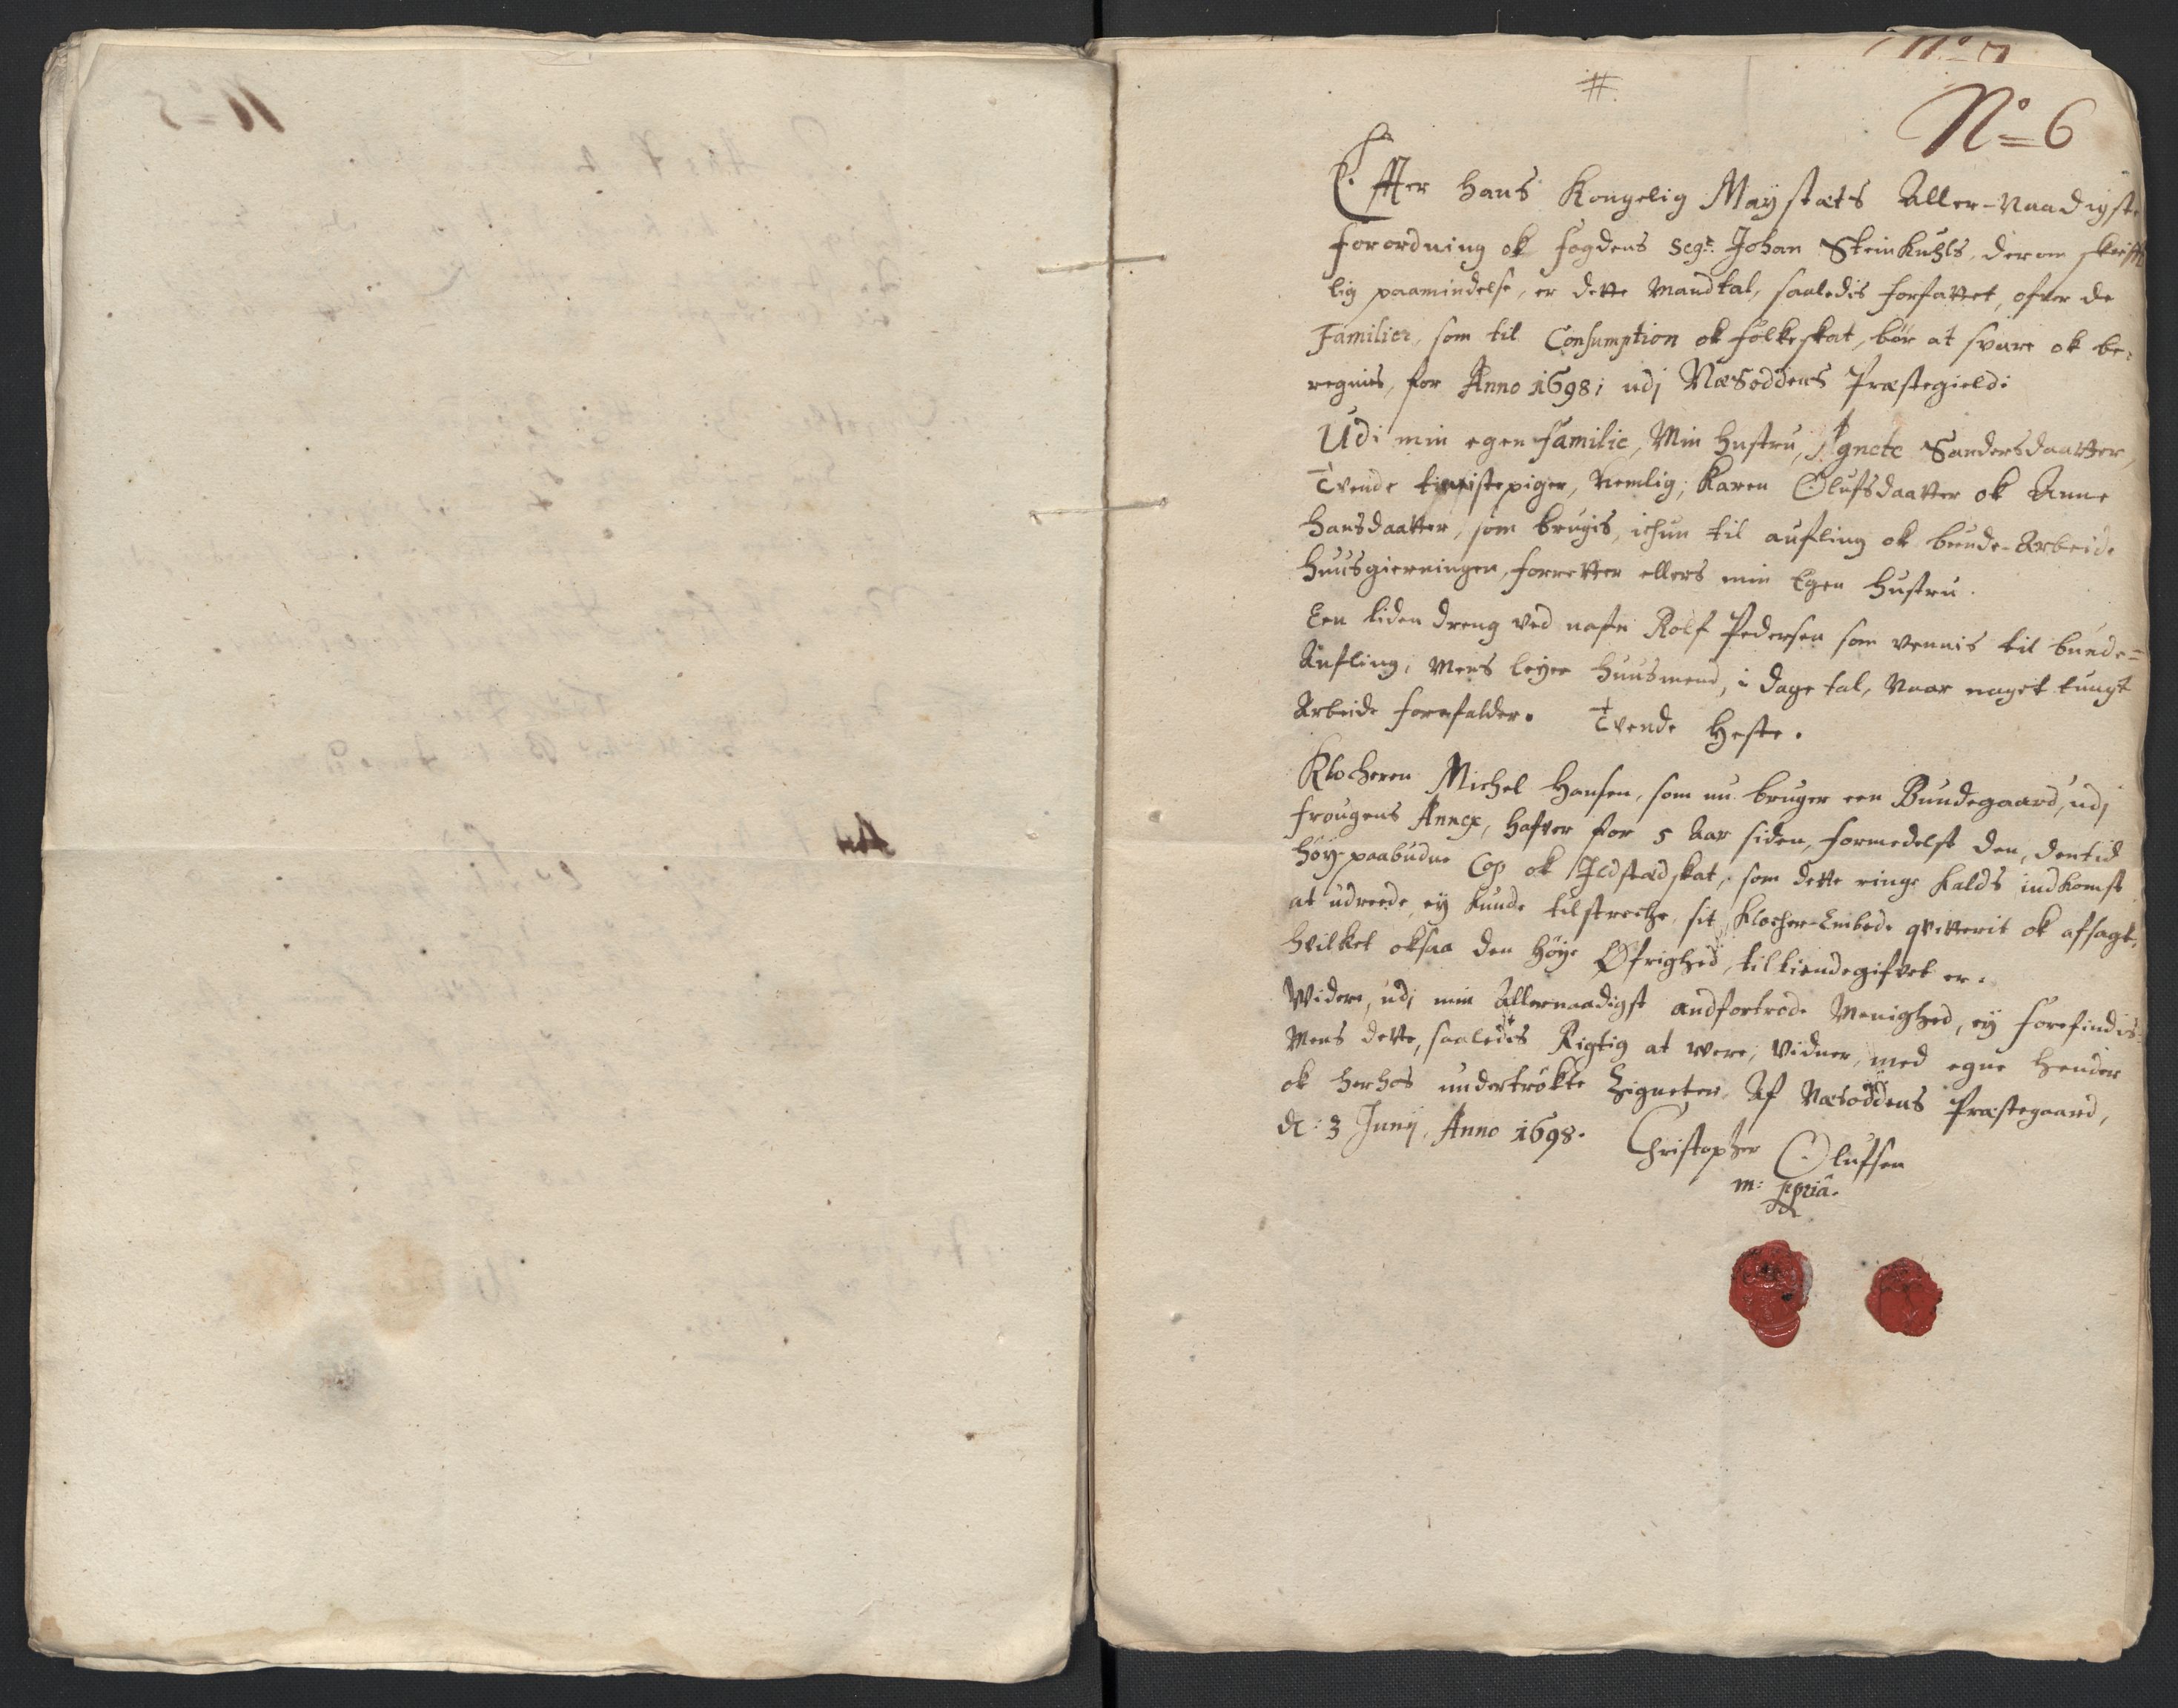 #
No 6
Effter hans Kongelig Maÿstæts Aller-Naadigste
forordning ok fogdens Segr. Johan Steinkuhls, derom skrifft
lig paamindelse, er dette Mandtal, saaledis forfattet, ofver de
Familier, som til Consumption ok folkeskat, bør at svare ok be-
regnis, for Anno 1698; udj Næsoddens Præstegield:
Udi min egen Familie, Min Hustru, Agnete Sandersdaatter,
Tvende tienistepiger, Nemlig; Karen Olufsdaatter ok Anne
Hansdaatter, som brugis, ichun til aufling ok bunde-Arbeide
Huusgierningen, forretter ellers min Egen Hustru.
Een liden dreng ved nafn Rolf Pedersen som vennis til bunde-
Aufling, Mens leyer Huusmend, i dage tal, Naar noget tungt
Arbeide forefalder. Tvende Heste.
Klocheren Michel Hansen, som nu bruger een Bundegaard, udj
frougens Annex, hafver for 5 Aar siden, formedelst den, dentid
høÿ-paabudne Cop ok Ildstædskat, som dette ringe kalds indkomst
at udreede, eÿ kunde tilstreche, sit Klocher-Embede qvitterit ok afsagt,
hvilket oksaa den høÿe Øfrighed, tilkiendegifvet er.
Widere, udj min Allernaadigst andfortrode Menighed, eÿ forefindis.
Mens dette, saaledis Rigtig at were, Vidner, med egne hender
ok herhos undertrÿkte Zigneter. Af Næsoddens Præstegaard,
d: 3 Junij, Anno 1698. Christopher Olufsen
m: ppriâ.